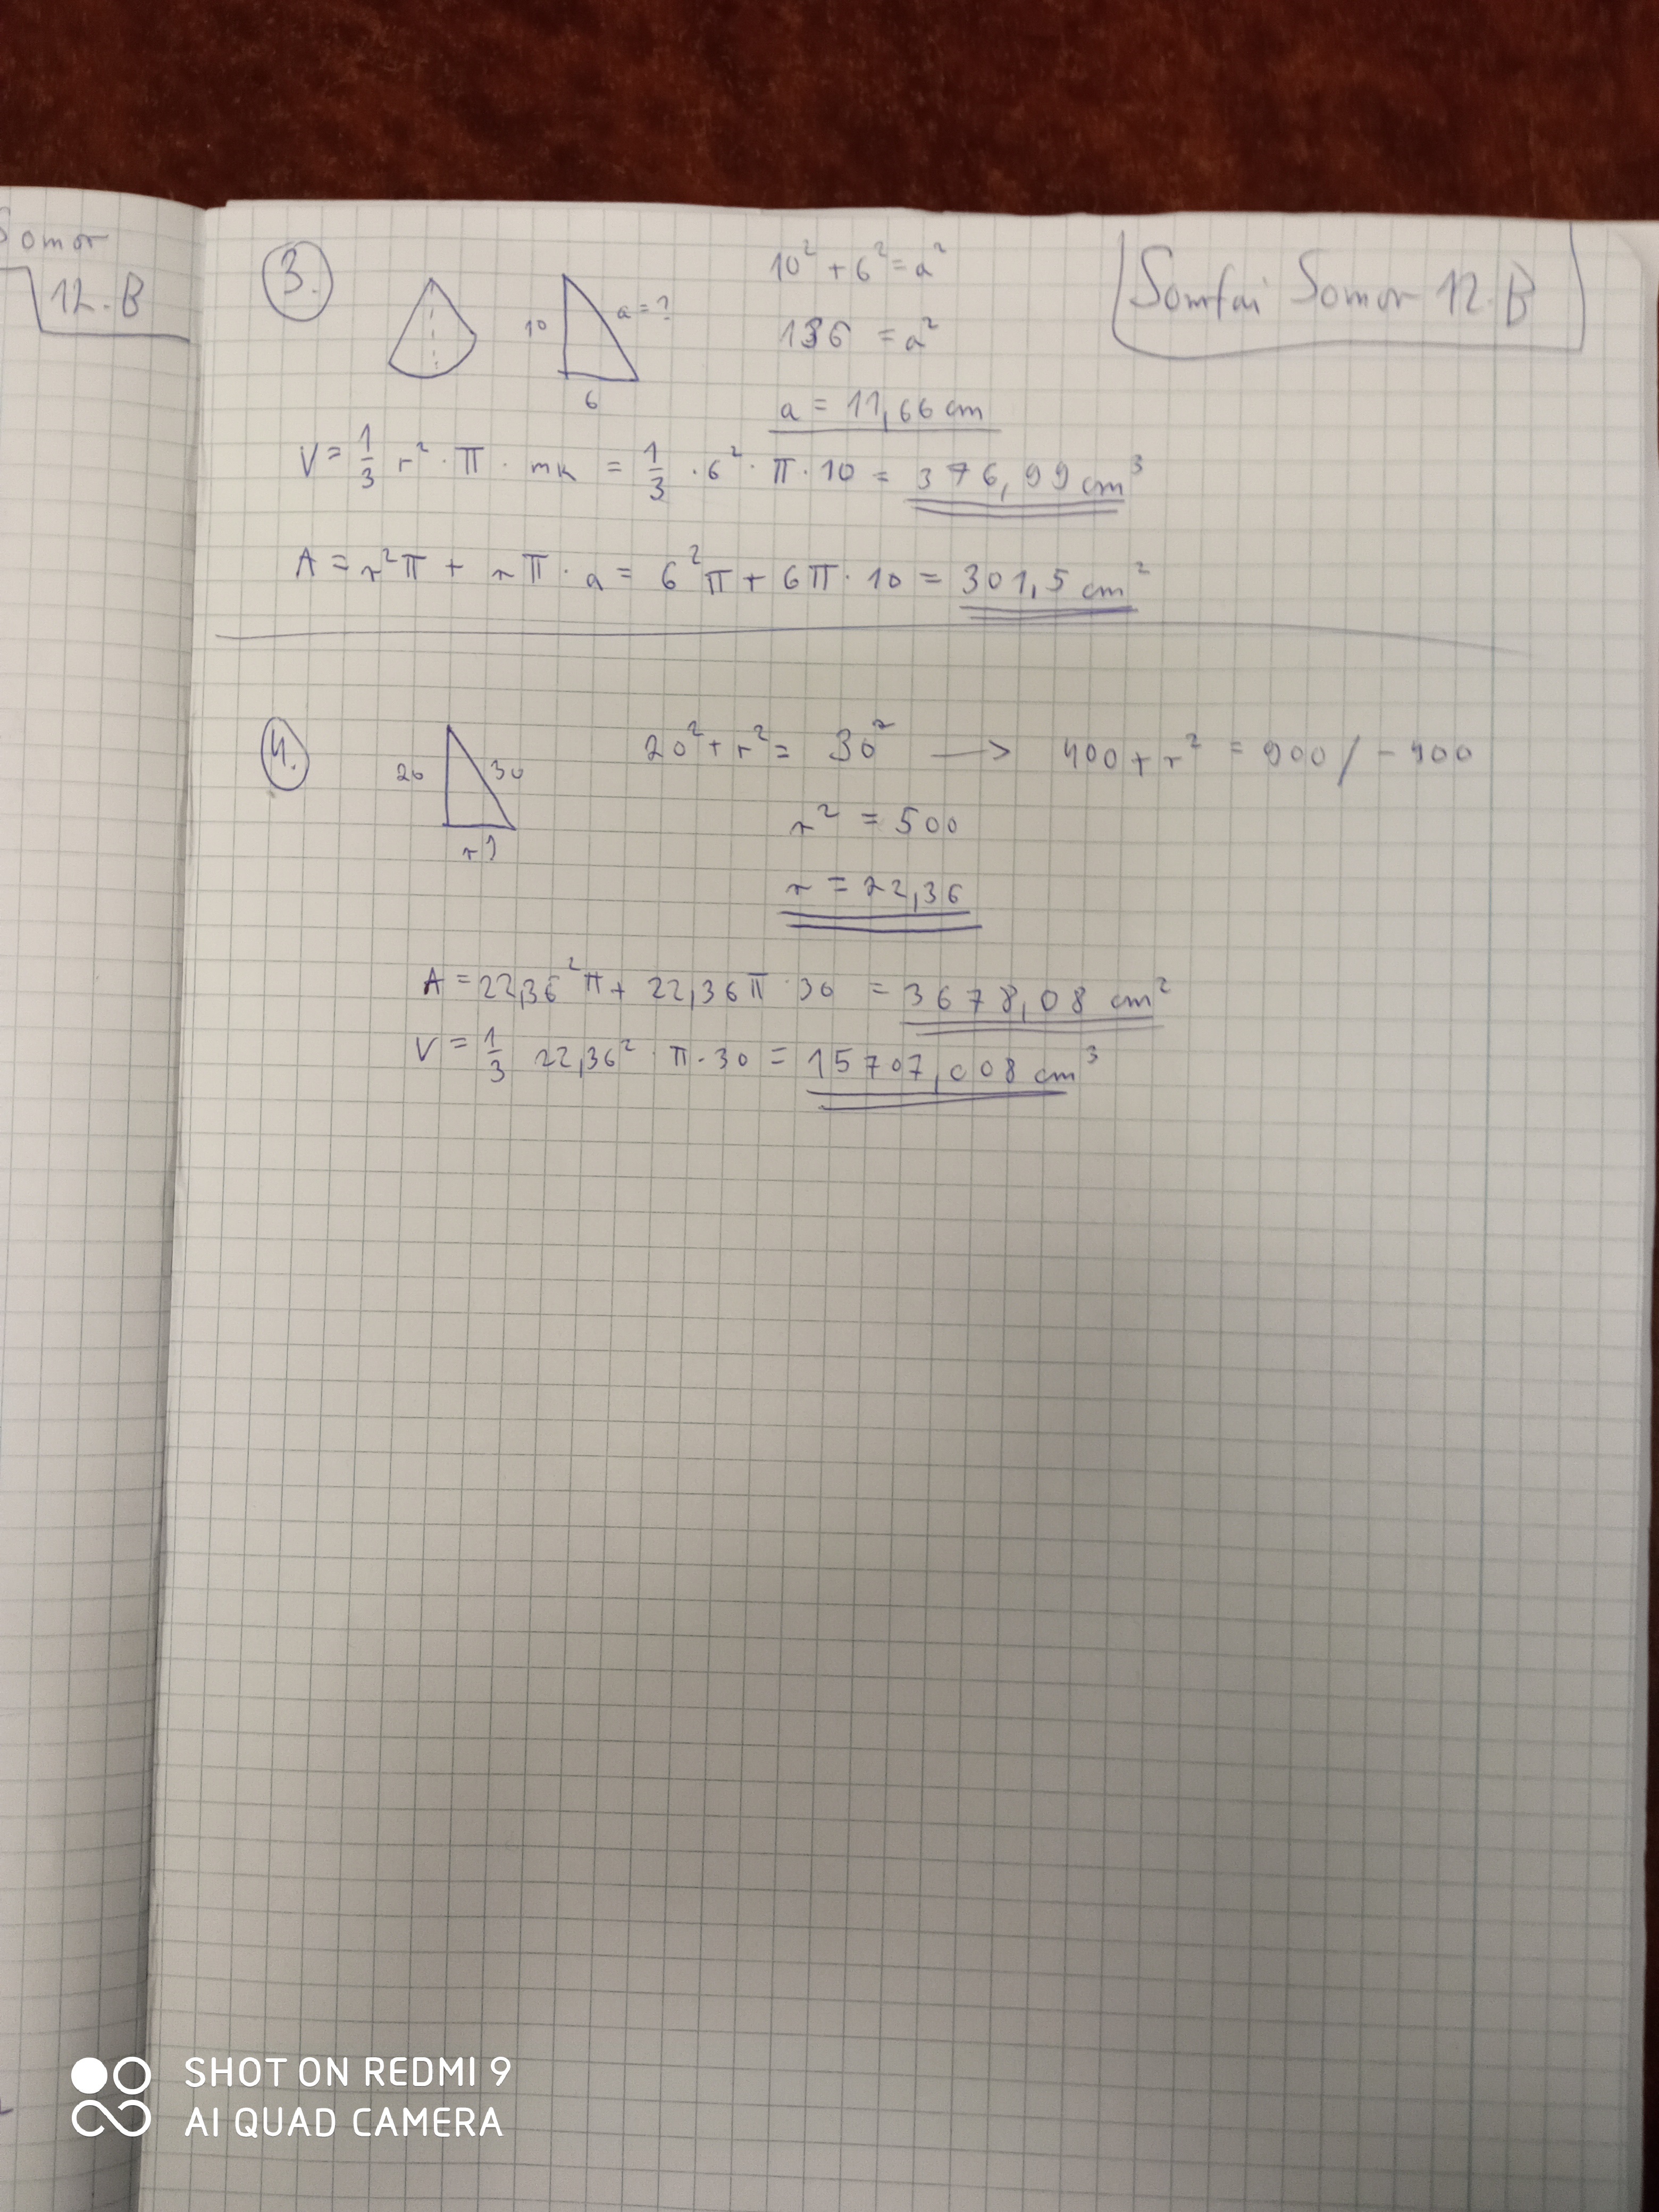 Somor
12.B
Somfai Somor 12.B
3.
10
a=?
6
10²+6²=a²
136 =a²
a=11,66 cm
V=1/3 r²·π·mk = 1/3·6²·π·10= 376,99 cm³
A=r²π+rπ·a=6²π+6π·10=301,5 cm²
4.
20
30
r?
20²+r²= 30² → 400+r²=900/-400
r²=500
r=22,36
A=22,36²π+22,36π·30=3678,08 cm²
V=1/3 22,36²·π·30=15707,008 cm³
SHOT ON REDMI 9
AI QUAD CAMERA